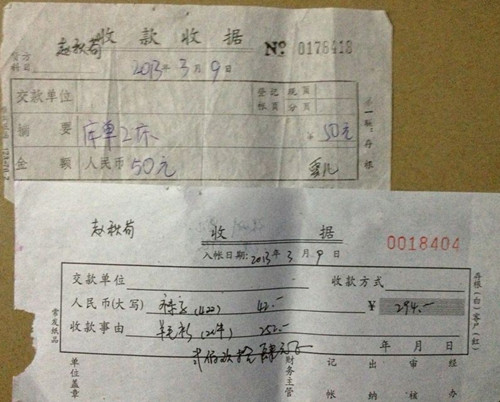 赵秋荷 收款收据 № 0178418
贷方科目 2013年3月9日
交款单位 登记 现页
帐页 分页
摘要 床单2床 ¥50元
金额 人民币50元
第一联:存根
赵秋荷 收据 0018404
入帐日期:2013年3月9日
交款单位 收款方式
人民币(大写) (422) 42.- ¥294.-
收款事由 (21件) 252.-
年 月 日
单位盖章 财务主管 记帐 出纳 审核 经办
常发纸品
存根(白)客户(红)